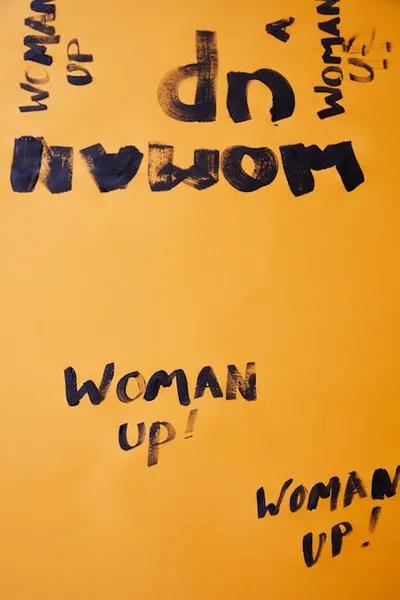 WOMAN
UP
A
WOMAN
UP
WOMAN
UP
WOMAN
UP!
WOMAN
UP!